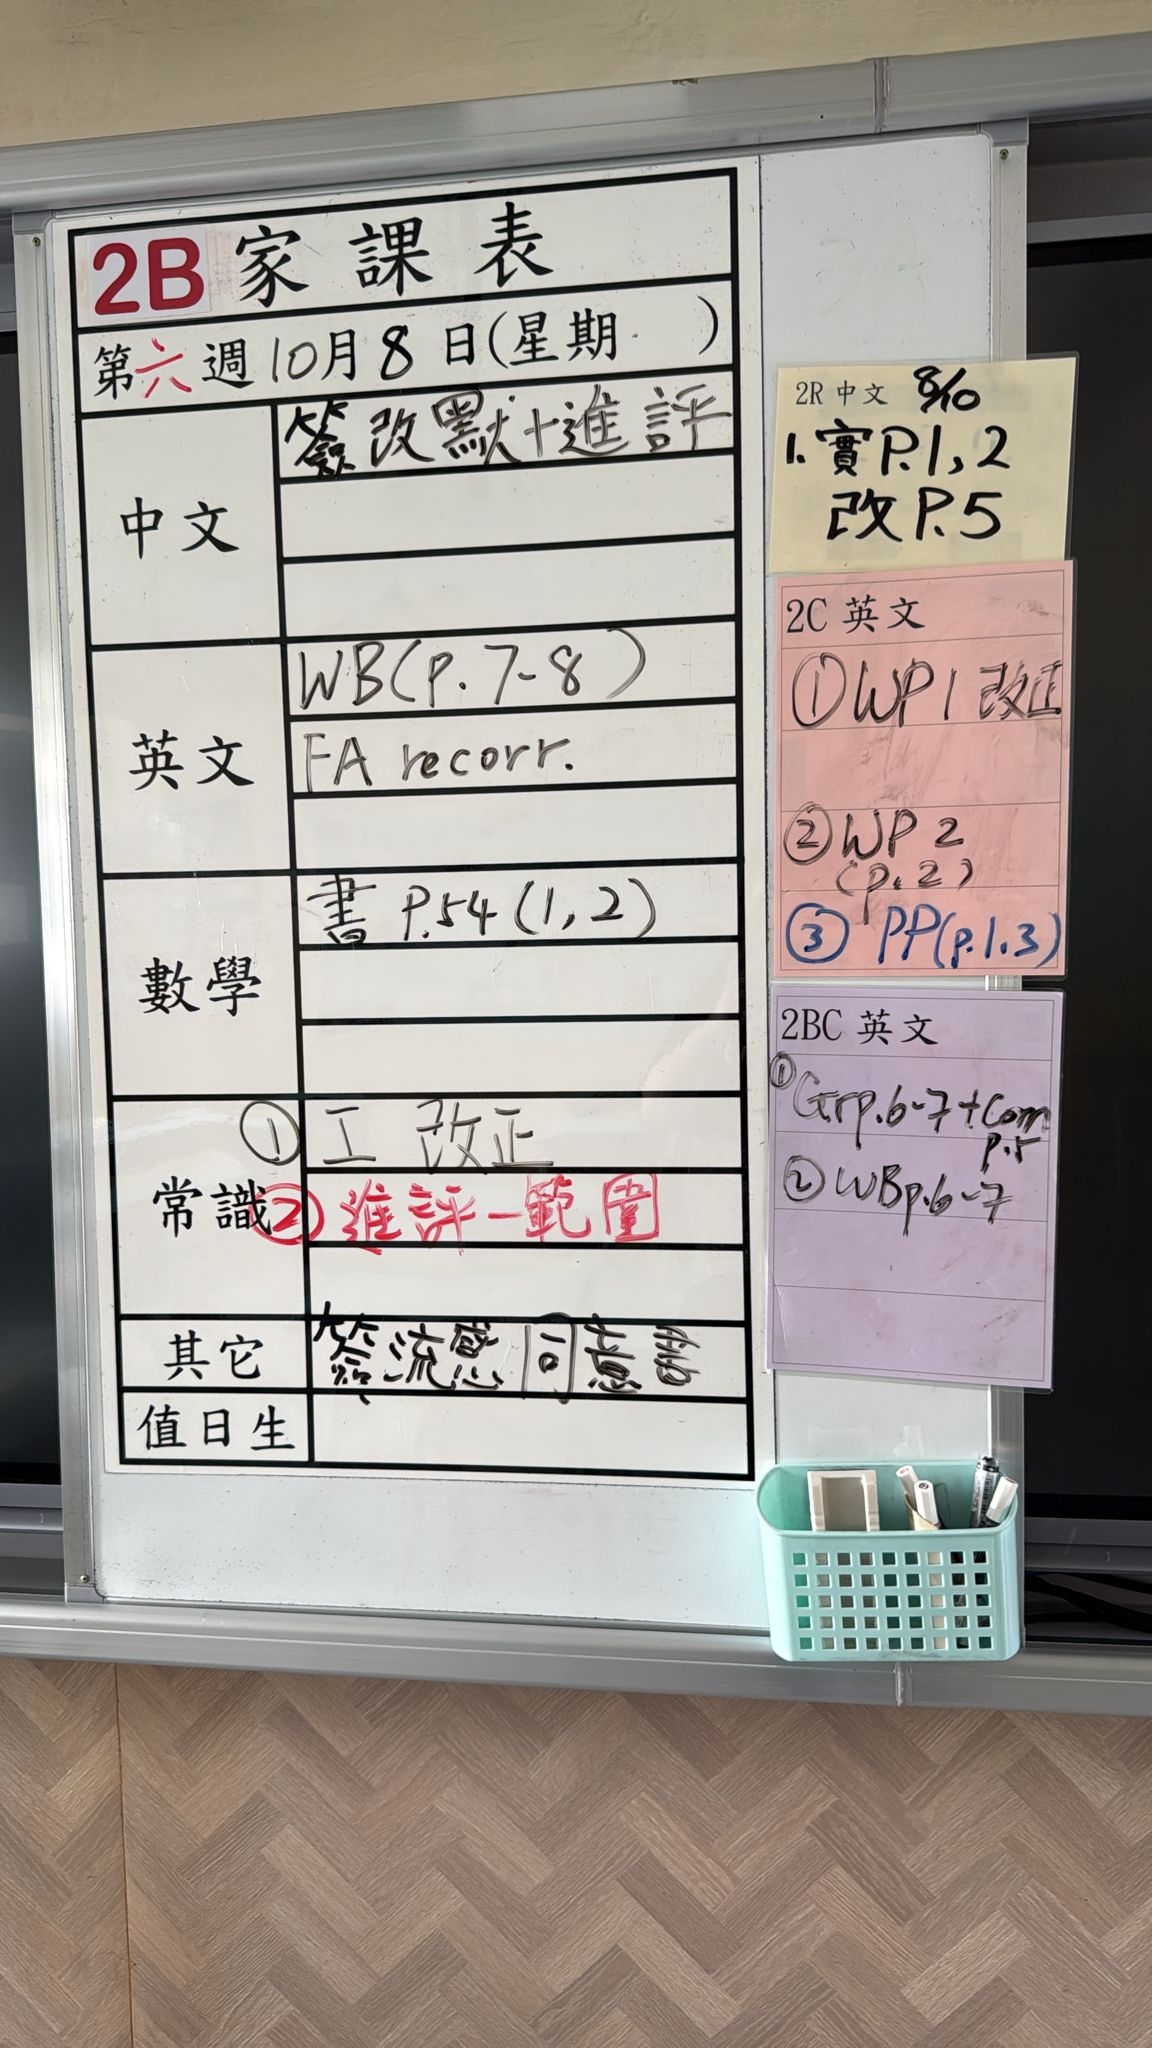 2B 家課表
第六週10月8日(星期 )
中文
簽改默+進評
英文
WB(p.7-8)
FA recorr.
數學
書 P.54 (1,2)
常識
① 工 改正
② 進評一範圍
其它
簽流感同意書
值日生
2R 中文 8/10
1. 實P.1,2
改P.5
2C 英文
① WP 1 改正
② WP 2
(p.2)
③ PP(p.1.3)
2BC 英文
① Grp.6-7+Com
p.5
② WBp.6-7